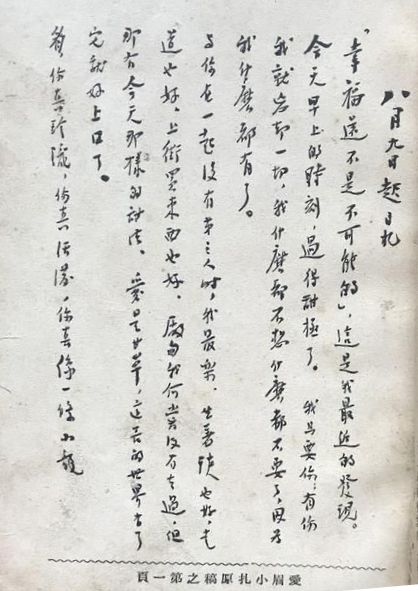 八月九日起日札
「幸福還不是不可能的」,這是我最近的發現。
今天早上的時刻,過得甜極了。我只要你;有你
我就忘却一切,我什麽都不想什麽都不要了,因为
我什麽都有了。
与你在一起沒有第三人时,我最樂。坐着談也好,走
道也好,上街買東西也好。廠甸我何嘗沒有去過,但
那有今天那樣的甜法。愛是甘草,這苦的世界有了
它就好上口了。
眉你真玲瓏,你真活潑,你真像一條小龍
愛眉小扎原稿之第一頁